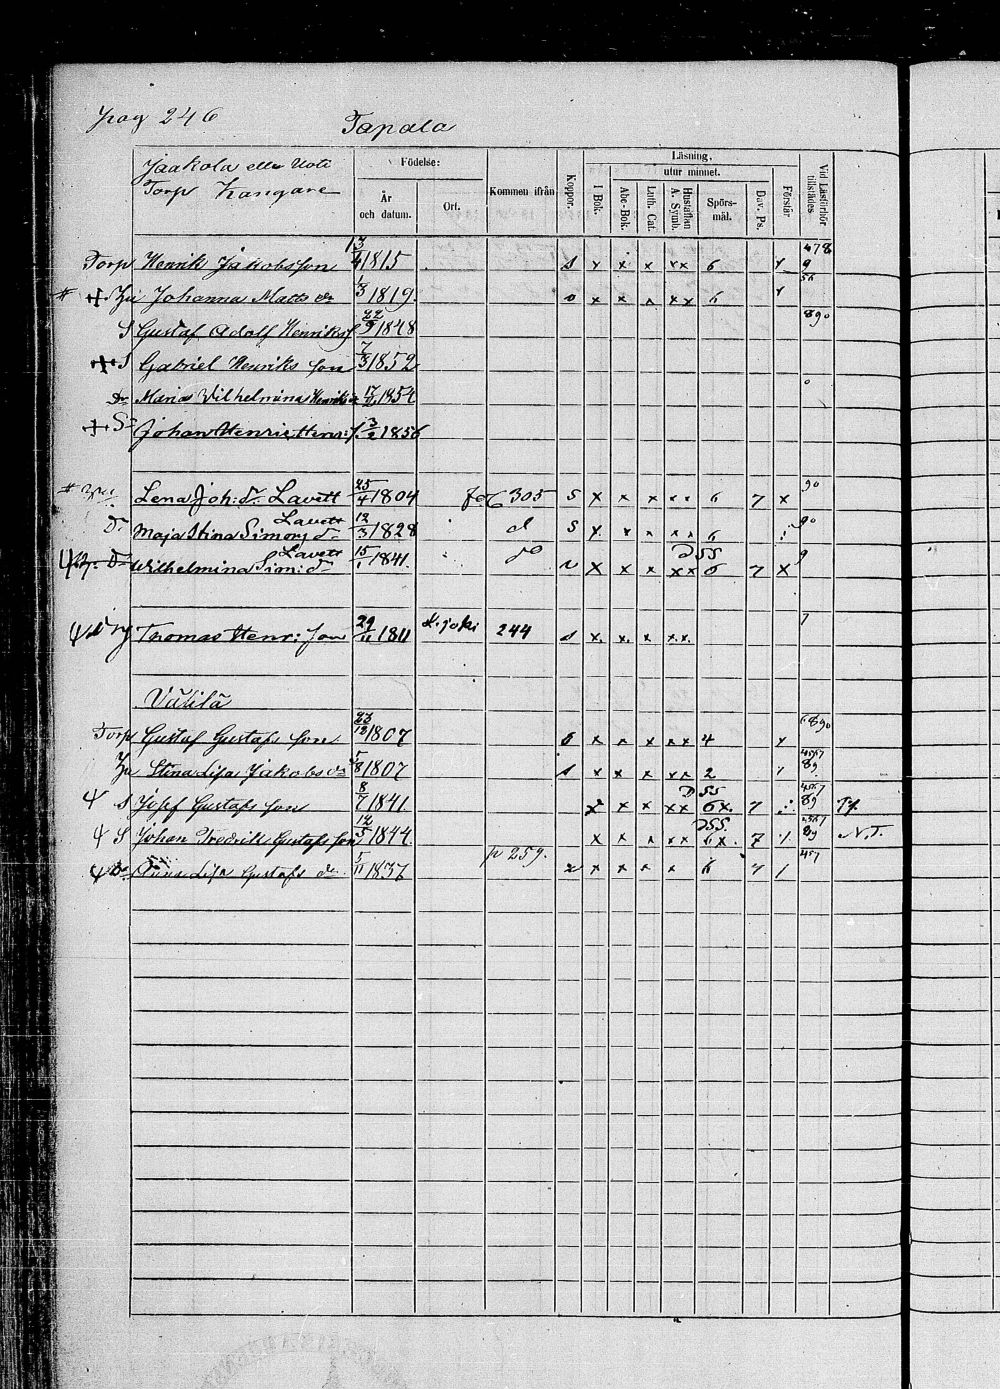 pag 246
Tapala
Jaakola eller Uoti
Torp Kangare
Födelse:
År och datum.
Ort.
Kommen ifrån
Koppor.
Läsning,
I Bok.
utur minnet.
Abc-Bok.
Luth. Cat.
Hustaflan A. Symb.
Spörs-mål.
Dav. Ps.
Förstår
Vid Läsförhör tillstädes
Torp Henrik Jakobsson 13/4 1815 s x x x xx 6 x 678 9
# + Hu Johanna Matts dr 1/3 1819. o x x x xx 6 x 56
S Gustaf Adolf Henrikss 22/9 1848 890
+ S Gabriel Henriks son 7/3 1852
Dr Maria Vilhelmina Henriks dr 17/ 1854
+ S Johan Henric Henr: s. 13/2 1856
# Lena Joh: dr Lavett 25/4 1804 fol 305 s x x x x x 6 7 x 90
D. Maja Stina Simons dr Lavett 12/3 1828 d s x x x x x 6 90
D Wilhelmina Sim: dr Lavett 15/1 1841. do v x x x xx DSS 6 7 x 9
Thomas Henr: son 29/11 1811 S.joki 244 s x x x x x 7
Vätilä
Torp Gustaf Gustafs son 23/12 1807 6 x x x xx 4 x 6890
Hu Stina Lisa Jakobs dr 5/8 1807 s x x x xx 2 4567 89
Ψ S Josef Gustafs son 8/7 1841 x x x xx DSS 6x. 7 4567 89
Ψ S Johan Fredrik Gustafs son 12/5 1844. x x x xx DSS. 6x. 7 4567 89 N.T.
Ψ Dr Anna Lisa Gustafs dr 5/11 1837 p 259. v x x x x 6 7 457